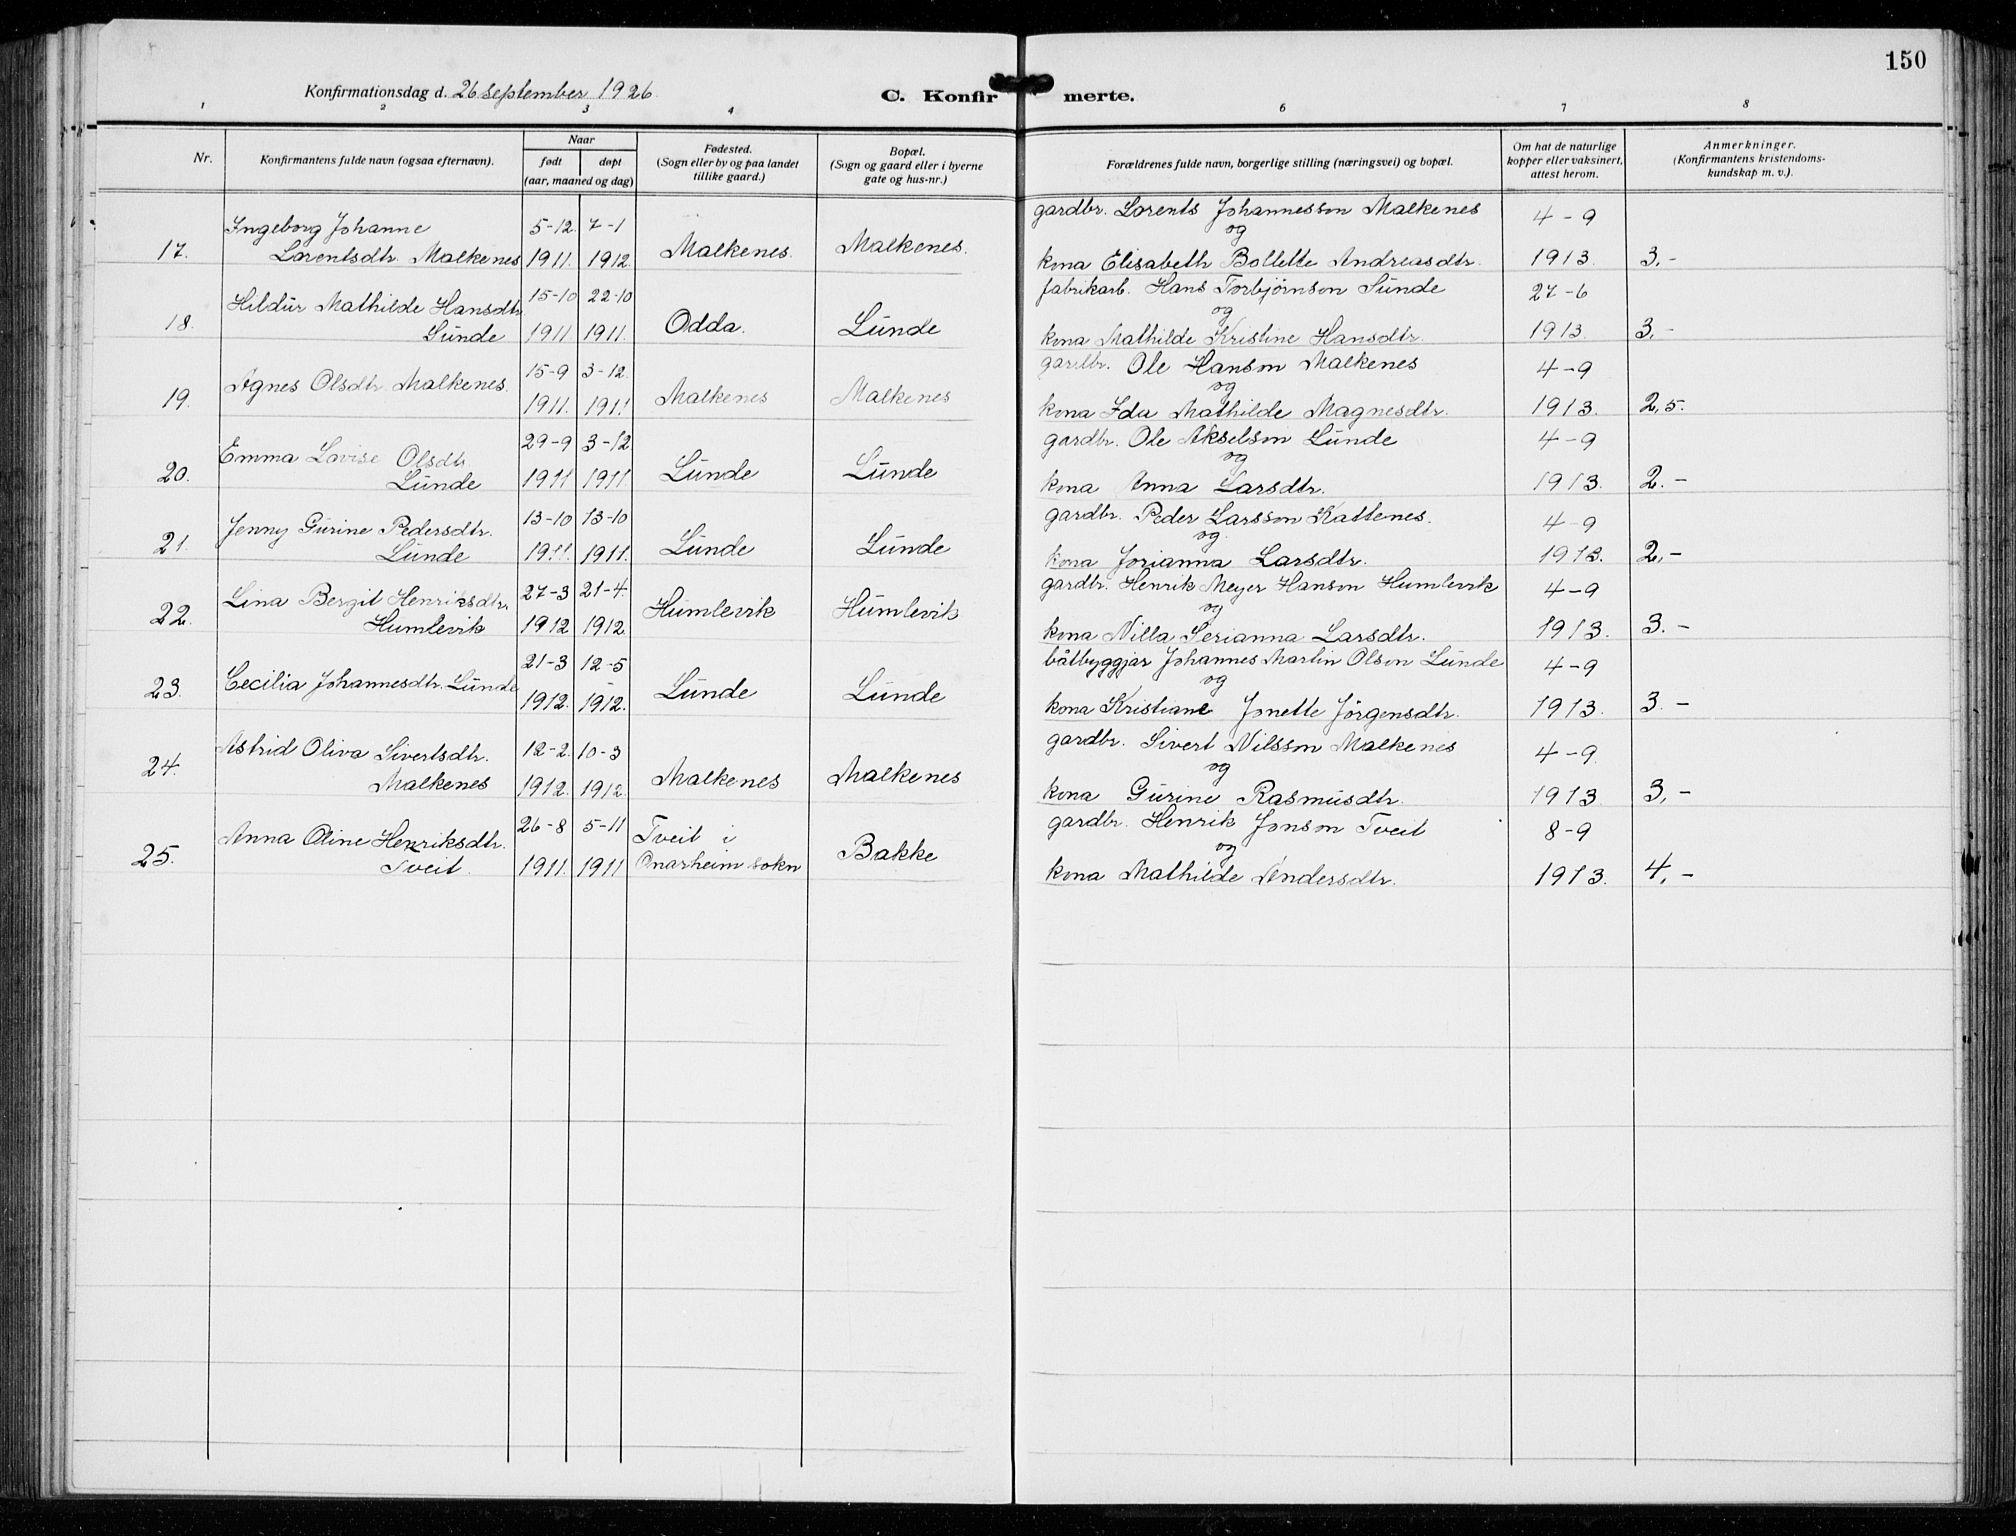 150
Konfirmationsdag d. 26 september 1926
C. Konfirmerte.
1 2 3 4 6 7 8
Nr.
Konfirmantens fulde navn (ogsaa efternavn).
Naar
født døpt
(aar, maaned og dag)
Fødested.
(Sogn eller by og paa landet
tillike gaard.)
Bopæl.
(Sogn og gaard eller i byerne
gate og hus-nr.)
Forældrenes fulde navn, borgerlige stilling (næringsvei) og bopæl.
Om hat de naturlige
kopper eller vaksinert,
attest herom.
Anmerkninger.
(Konfirmantens kristendoms-
kundskap m. v.).
Ingeborg Johanne 5-12 7-1 gardbr. Lorents Johannesson Malkenes 4-9
og
17. Lorentsdtr. Malkenes 1911. 1912. Malkenes. Malkenes. kona Elisabeth Bollette Andreasdtr. 1913. 3.-
Hildur Mathilde Hansdtr 15-10 22-10 fabrikarb. Hans Torbjørnson Sunde 27-6
og
18. Sunde 1911 1911. Odda. Lunde kona Mathilde Kristine Hansdtr. 1913. 3.-
Agnes Olsdtr. Malkenes. 15-9 3-12. gardbr. Ole Hanson Malkenes 4-9
og
19. 1911. 1911 Malkenes Malkenes kona Ida Mathilde Magnesdtr. 1913. 2,5.
Emma Lovise Olsdtr 29-9 3-12 gardbr. Ole Akselson Lunde 4-9
og
20. Lunde 1911 1911 Lunde Lunde kona Anna Larsdtr. 1913. 2.-
Jenny Gurine Pedersdtr. 13-10 13-10 gardbr. Peder Larsson Kattenes. 4-9
og
21. Lunde 1911. 1911. Lunde Lunde kona Jorianna Larsdtr. 1913. 2,-
Lina Bergit Henriksdtr. 27-3 21-4 gardbr. Henrik Meyer Hanson Humlevik 4-9
og
22. Humlevik 1912 1912. Humlevik Humlevik kona Nilla Serianna Larsdtr. 1913. 3.-
Cecilia Johannesdtr. Lunde 21-3 12-5 båtbyggjar Johannes Martin Olson Lunde 4-9
og
23. 1912. 1912. Lunde Lunde kona Kristiane Jonette Jörgensdtr. 1913. 3.-
Astrid Oliva Sivertsdtr. 12-2 10-3 gardbr. Sivert Nilsson Malkenes 4-9
og
24. Malkenes 1912. 1912. Malkenes Malkenes kona Gurine Rasmusdtr. 1913 3,-
Anna Oline Henriksdtr. 26-8 5-11 Tveit i gardbr. Henrik Jonson Tveit 8-9
og
25. Tveit. 1911. 1911 Onarheim sokn Bakke kona Mathilde Andersdtr. 1913. 4,-